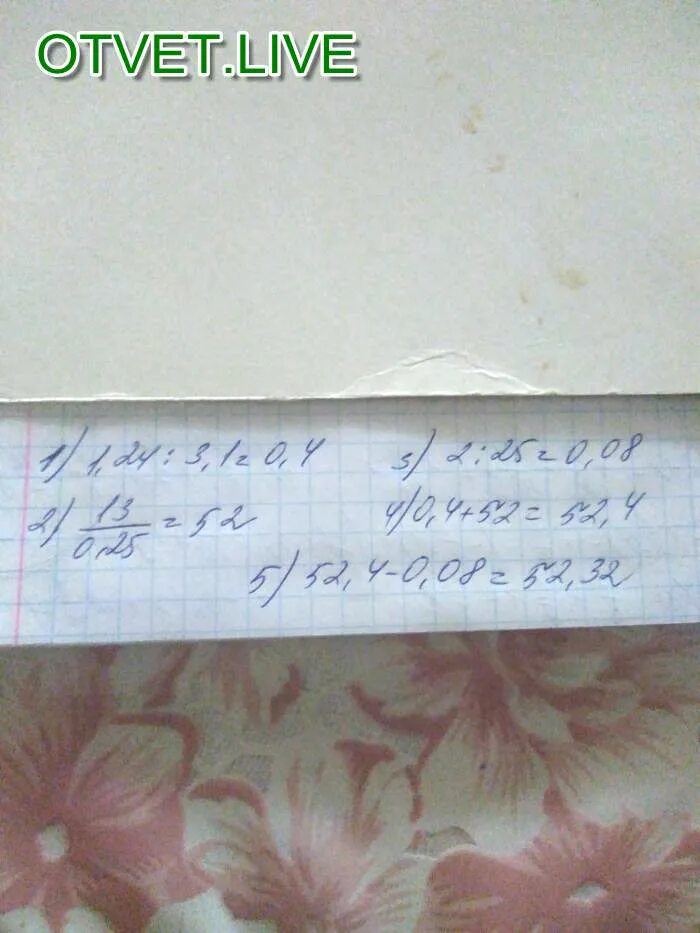 OTVET.LIVE
1) 1,24 : 3,1 = 0,4
2) 13/0,25 = 52
3) 2 : 25 = 0,08
4) 0,4 + 52 = 52,4
5) 52,4 - 0,08 = 52,32